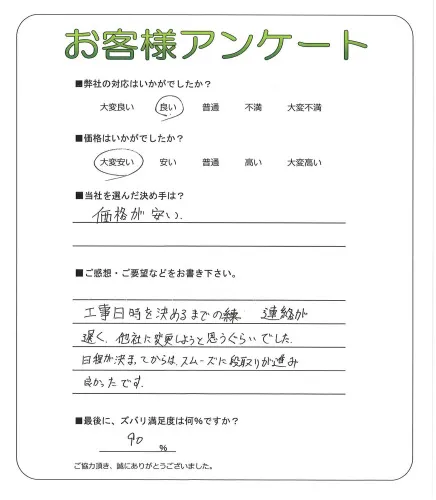 お客様アンケート
■弊社の対応はいかがでしたか？
大変良い 良い 普通 不満 大変不満
■価格はいかがでしたか？
大変安い 安い 普通 高い 大変高い
■当社を選んだ決め手は？
価格が安い.
■ご感想・ご要望などをお書き下さい。
工事日時を決めるまでの 連絡が
遅く、他社に変更しようと思うぐらいでした.
日程が決まってからは、スムーズに段取りが進み
良かったです.
■最後に、ズバリ満足度は何％ですか？
90 %
ご協力頂き、誠にありがとうございました。